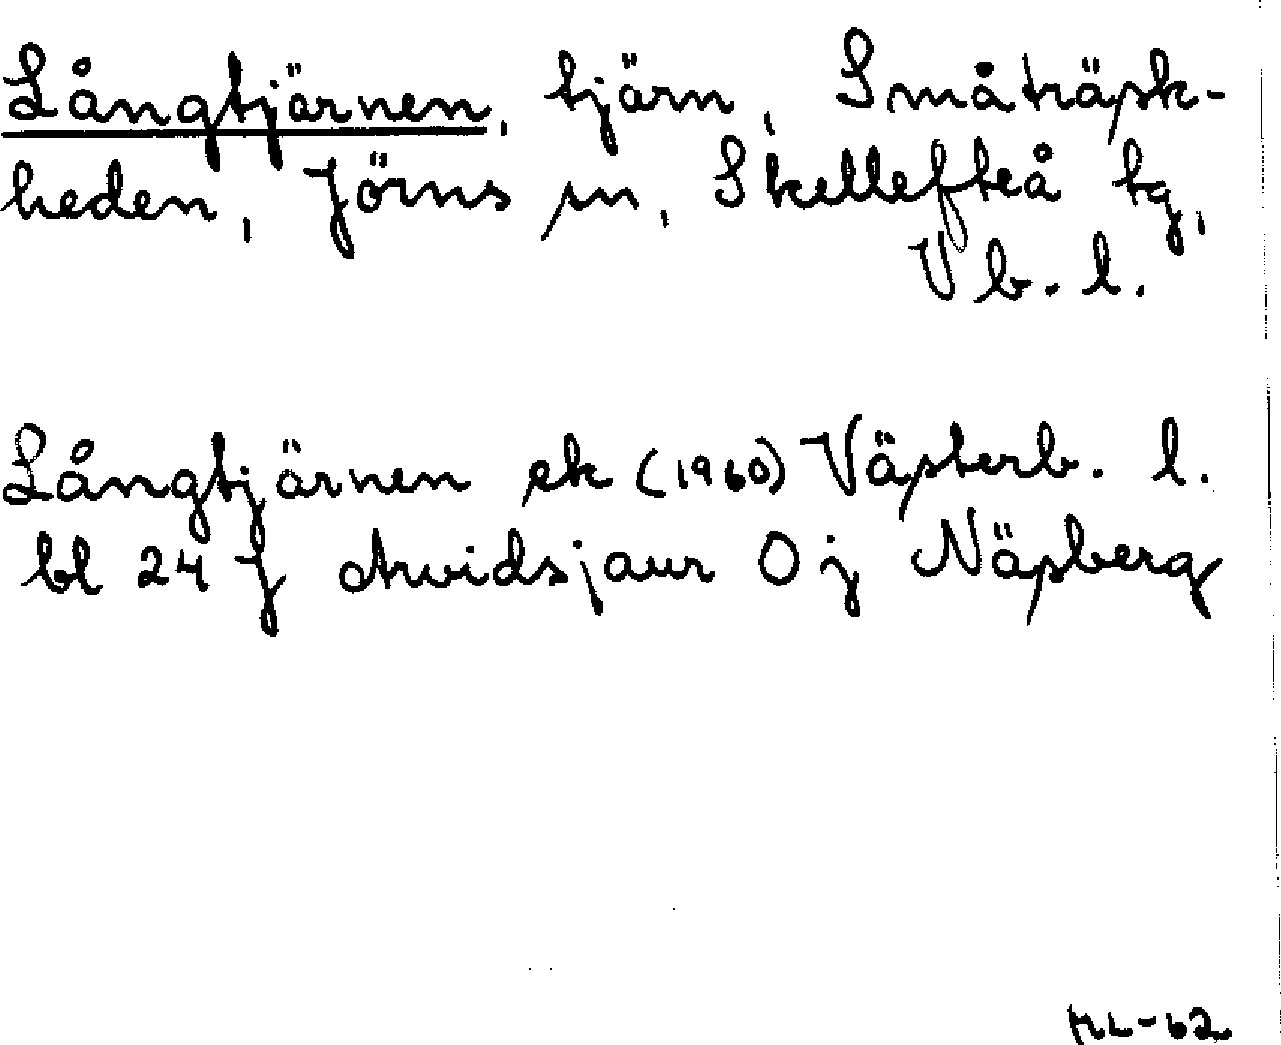 Långtjärnen, tjärn, Småträsk-
heden, Jörns sn, Skellefteå tg,
Vb. l.
Långtjärnen ek (1960) Västerb. l.
bl 24 J Arvidsjaur 0 j Näsberg
ML-62